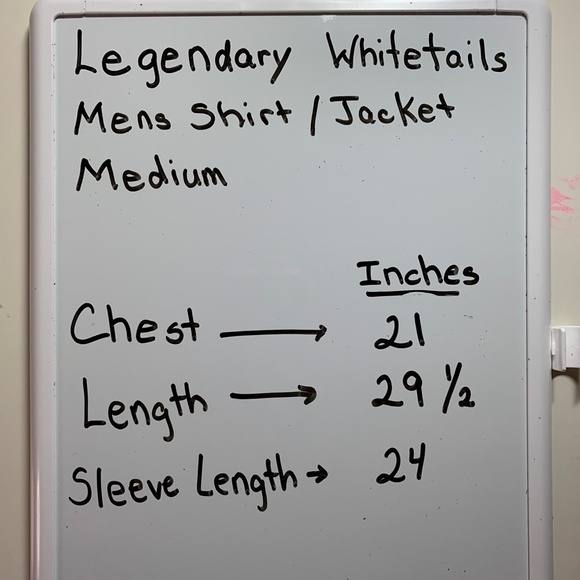 Legendary Whitetails
Mens Shirt / Jacket
Medium
Inches
Chest → 21
Length → 29 ½
Sleeve Length → 24